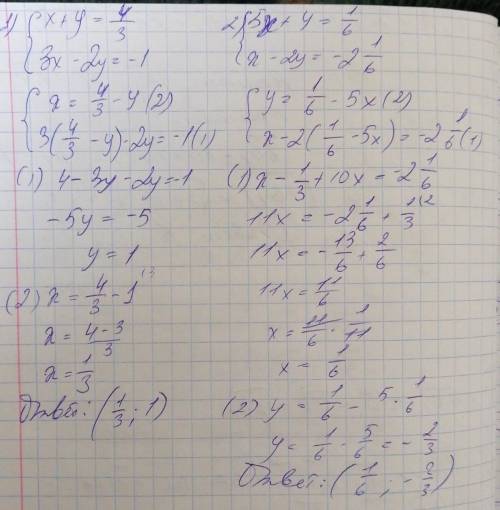 1) { x + y = 4/3
3x - 2y = -1
{ x = 4/3 - y (2)
3(4/3 - y) - 2y = -1 (1)
(1) 4 - 3y - 2y = -1
-5y = -5
y = 1
(2) x = 4/3 - 1 (3
x = 4-3/3
x = 1/3
Ответ: (1/3; 1)
2) { 5x + y = 1/6
x - 2y = -2 1/6
{ y = 1/6 - 5x (2)
x - 2(1/6 - 5x) = -2 1/6 (1)
(1) x - 1/3 + 10x = -2 1/6
11x = -2 1/6 + 1/3 (2
11x = -13/6 + 2/6
11x = 11/6
x = 11/6 · 1/11
x = 1/6
(2) y = 1/6 - 5 · 1/6
y = 1/6 - 5/6 = - 2/3
Ответ: (1/6; - 2/3)